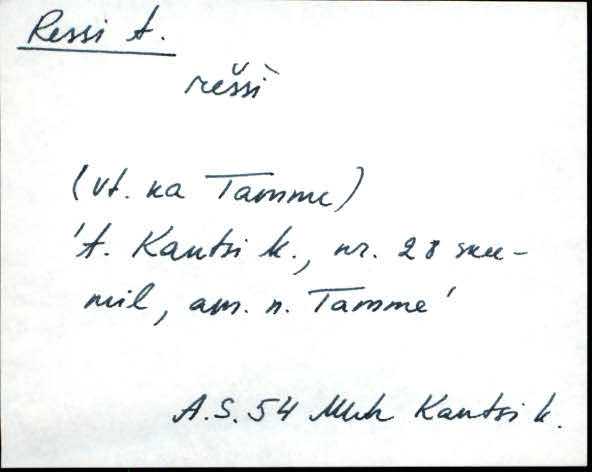 Ressi t.
rešsì
(vt. ka Tamme)
't. Kantsi k., nr. 28 suu-
mil, am. n. Tamme'
A.S. 54 Muh Kantsi k.